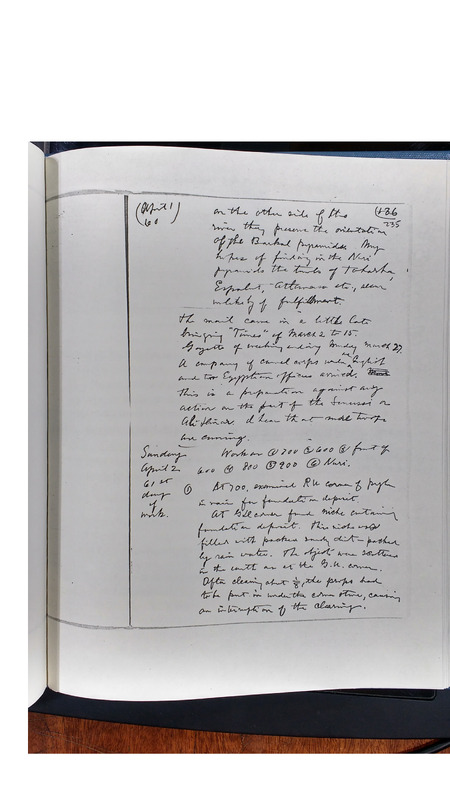 (April 1)
60
on the other side of the
river they preserve the orientation
of the Barkal pyramids. My
hopes of finding in the Nuri
pyramids the tombs of Taharka,
Espalut, Atlanarsa etc., seem
unlikely of fulfillment.
436
235
The mail came in a little late
bringing "Times" of March 2 to 15.
Gazette of week ending Monday March 27.
A company of camel corps under an English
and two Egyptian officers arrived.
This is a preparation against any
action on the part of the Senussi or
Ali Dinar. I hear that more troops
are coming.
Sunday
April 2
61st
day
of
work.
Work on @ 700 @ 600 @ front of
600 @ 800 @ 900 @ Nuri.
① At 700, examined corner of
in vain for foundation deposit.
At corner found niche containing
foundation deposit. This niche was
filled with packed sandy dirt - packed
by rain water. The objects were scattered
in the earth as at the corner.
After clearing about the props had
to be put in under the corner stone, causing
an interruption of the clearing.